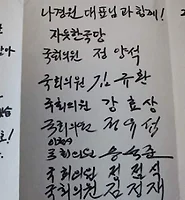 나경원 대표님과 함께!
자유한국당
국회의원 정양석
국회의원 김규환
국회의원 강효상
국회의원 정유섭
국회의원 송석준
국회의원 정점식
국회의원 김정재